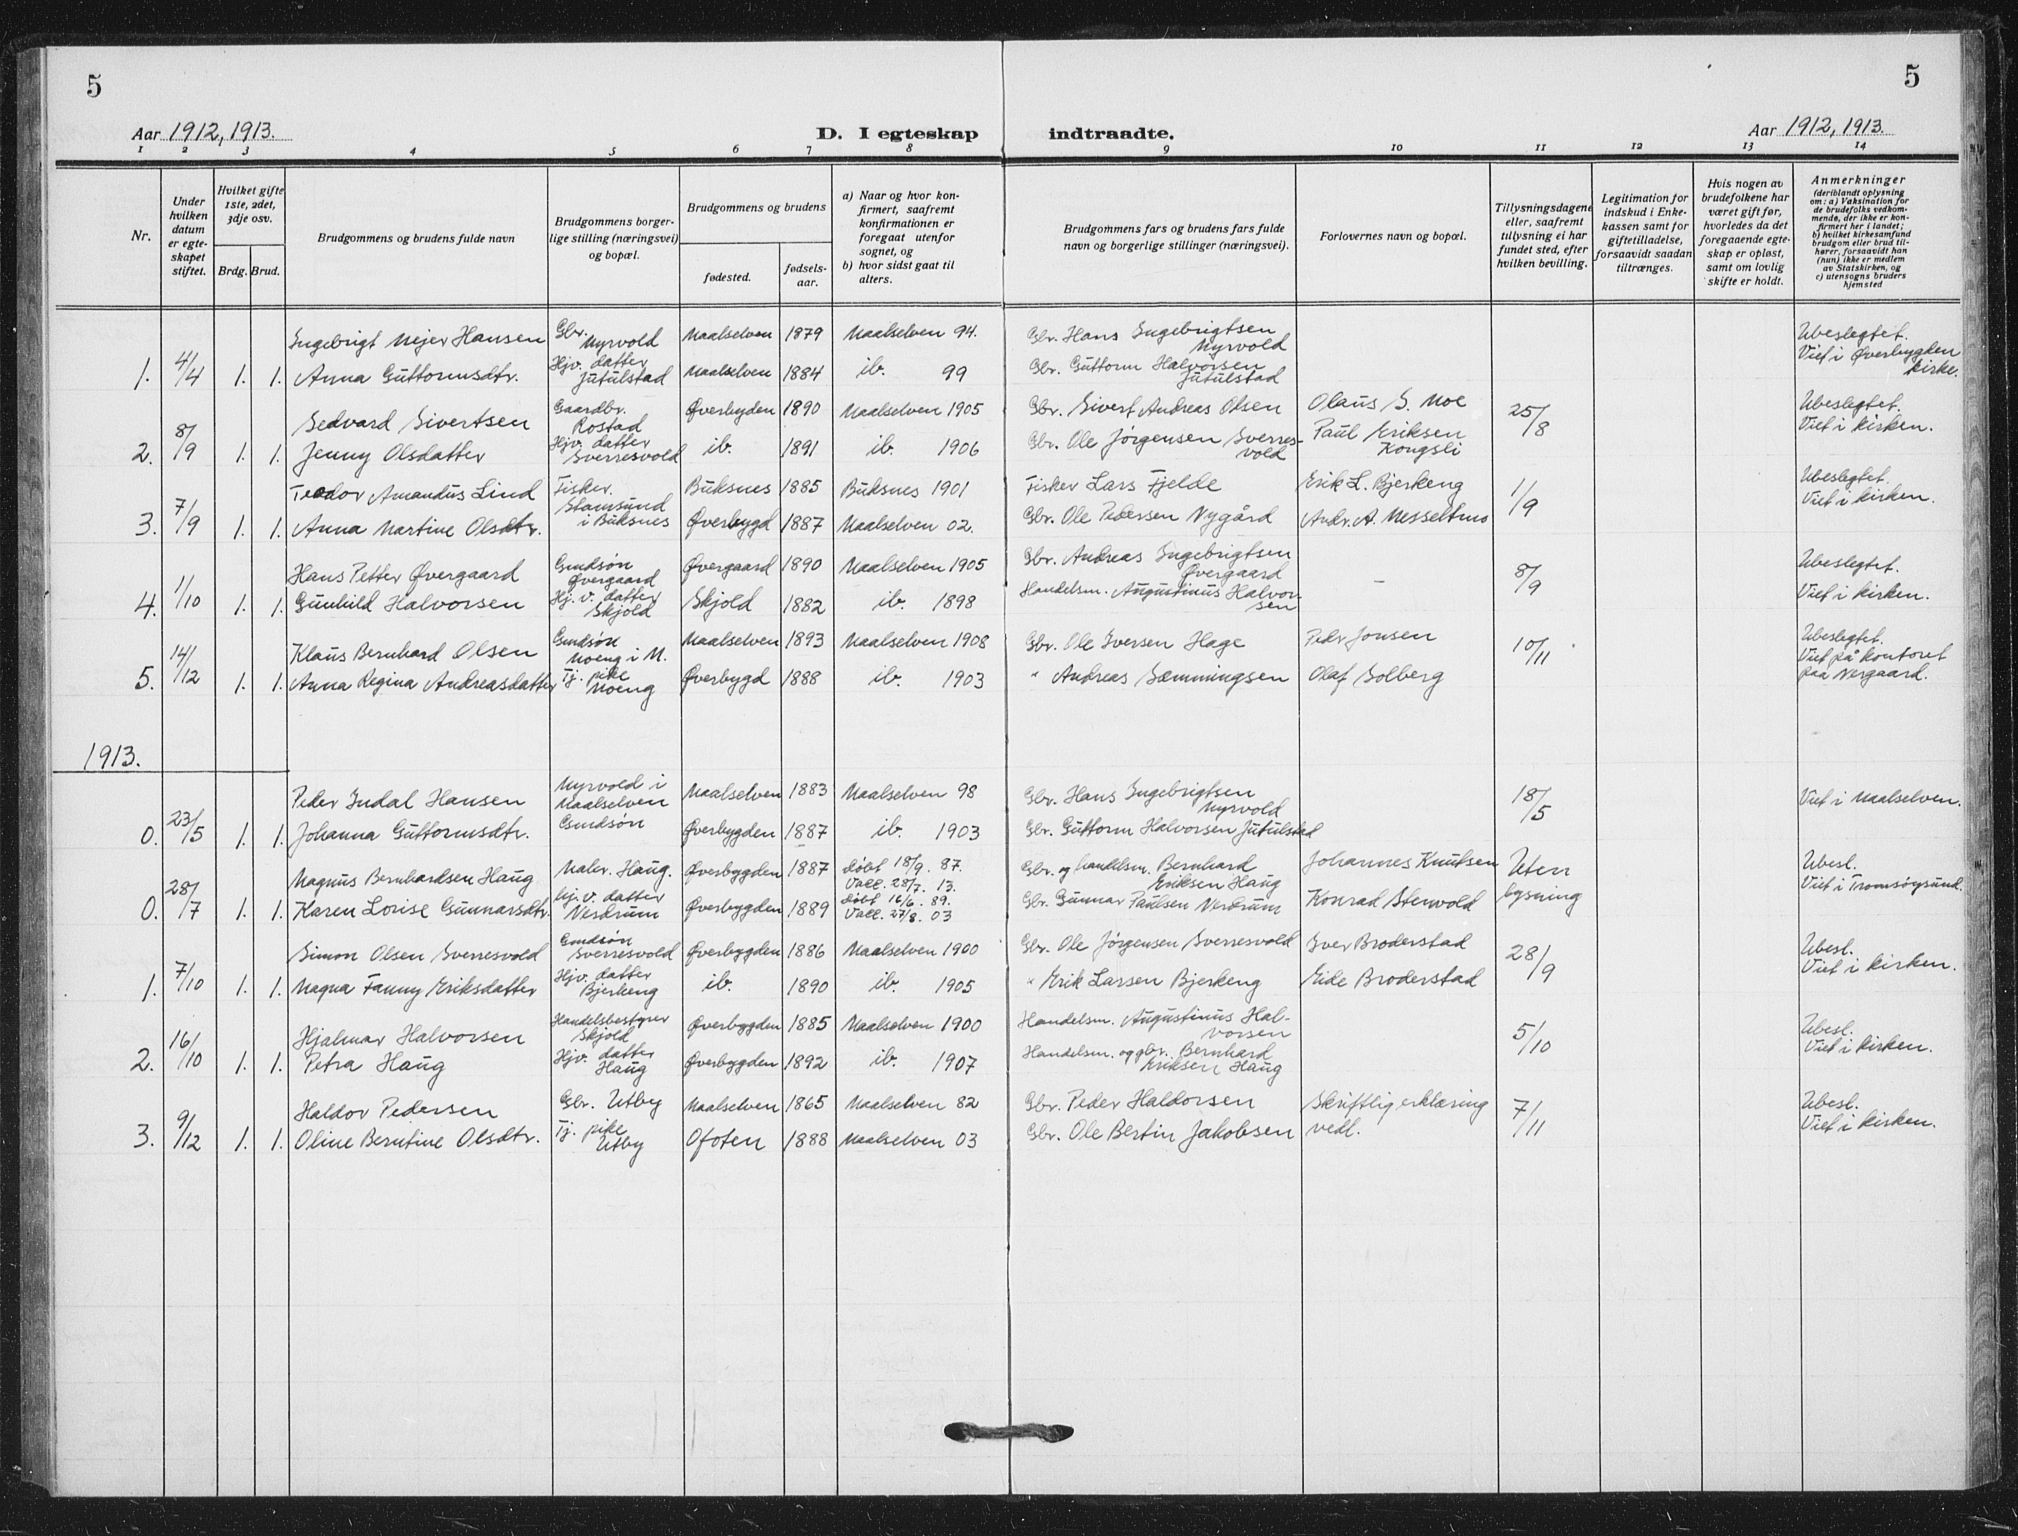 5
5
Aar 1912, 1913.
D. I egteskap indtraadte.
Aar 1912, 1913.
1 2 3 4 5 6 7 8 9 10 11 12 13 14
Nr.
Under hvilken datum er egteskapet stiftet.
Hvilket gifte 1ste, 2det, 3dje osv.
Brdg. Brud.
Brudgommens og brudens fulde navn
Brudgommens borgerlige stilling (næringsvei) og bopæl.
Brudgommens og brudens
fødested.
fødselsaar.
a) Naar og hvor konfirmert, saafremt konfirmationen er foregaat utenfor sognet, og
b) hvor sidst gaat til alters.
Brudgommens fars og brudens fars fulde navn og borgerlige stillinger (næringsvei).
Forlovernes navn og bopæl.
Tillysningsdagene eller, saafremt tillysning ei har fundet sted, efter hvilken bevilling.
Legitimation for indskud i Enkekassen samt for giftetilladelse, forsaavidt saadan tiltrænges.
Hvis nogen av brudefolkene har været gift før, hvorledes da det foregaaende egteskap er opløst, samt om lovlig skifte er holdt.
Anmerkninger
(deriblandt oplysning om: a) Vaksination for de brudefolks vedkommende, der ikke er konfirmert her i landet; b) hvilket kirkesamfund brudgom eller brud tilhører, forsaavidt han (hun) ikke er medlem av Statskirken, og c) utensogns bruders hjemsted
Ingebrigt Mejer Hansen Gbr. Myrvold Maalselven 1879 Maalselven 94. Gbr. Hans Ingebrigtsen Myrvold Ubeslegtet.
1. 4/4 1. 1. Anna Guttormsdtr. Hjv. datter Jutulstad Maalselven 1884 ib. 99 Gbr. Guttorm Halvorsen Jutulstad Viet i Øverbygden kirke.
Sedvard Sivertsen Gaardbr. Rostad Øverbyden 1890 Maalselven 1905 Gbr. Sivert Andreas Olsen Olaus S. Moe 25/8 Ubeslegtet.
2. 8/9 1. 1. Jenny Olsdatter Hjv. datter Sverresvold ib. 1891 ib. 1906 Gbr. Ole Jørgensen Sverresvold Paul Eriksen Kongsli Viet i kirken.
Teodor Amandus Lind Fisker. Stamsund i Buksnes Buksnes 1885 Buksnes 1901 Fisker Lars Fjelde Erik L. Bjerkeng 1/9 Ubeslegtet.
3. 7/9 1. 1. Anna Martine Olsdtr. Øverbygd 1887 Maalselven 02. Gbr. Ole Pedersen Nygård Andr. A. Messeltmo Viet i kirken.
Hans Petter Øvergaard Gmdsøn Øvergaard Øvergaard 1890 Maalselven 1905 Gbr. Andreas Ingebrigtsen Øvergaard – 8/9 Ubeslegtet.
4. 1/10 1. 1. Gunhild Halvorsen Hj. v. datter Skjold Skjold 1882 ib. 1898 Handelsm. Augustinus Halvorsen Viet i kirken.
Klaus Bernhard Olsen Gmdsøn Moeng i M. Maalselven 1893 Maalselven 1908 Gbr. Ole Iversen Hage Peder Jonsen 10/11 Ubeslegtet.
5. 14/12 1. 1. Anna Regina Andreasdatter Tj. pike Moeng Øverbygd 1888 ib. 1903 " Andreas Sæmningsen Olaf Solberg Viet på kontoret paa Nergaard.
1913.
Peder Indal Hansen Myrvold i Maalselven Maalselven 1883 Maalselven 98 Gbr. Hans Ingebrigtsen Myrvold 18/5 Viet i Maalselven.
0. 23/5 1. 1. Johanna Guttormsdtr. Gmdsøn Øverbygden 1887 ib. 1903 Gbr. Guttorm Halvorsen Jutulstad
Magnus Bernhardsen Haug Maler. Haug. Øverbygden 1887 Døbt 18/9. 87. Vacc. 28/7. 13. Gbr. og handelsm. Bernhard Eriksen Haug Johannes Knutsen Uten Ubesl.
0. 28/7 1. 1. Karen Lovise Gunnarsdtr. hj. v. datter Nerdrum Øverbygden 1889 Døbt 16/6. 89. Vacc. 27/8. 03 Gbr. Gunnar Paulsen Nerdrum Konrad Stenvold lysning Viet i Tromsøysund.
Simon Olsen Sverresvold Gmdsøn Sverresvold Øverbygden 1886 Maalselven 1900 Gbr. Ole Jørgensen Sverresvold Iver Broderstad 28/9 Ubesl.
1. 7/10 1. 1. Magna Fanny Eriksdatter Hjv. datter Bjerkeng ib. 1890 ib. 1905 " Erik Larsen Bjerkeng Eide Broderstad Viet i kirken.
Hjalmar Halvorsen Handelsbestyrer Skjold Øverbygden 1885 Maalselven 1900 Handelsm. Augustinus Halvorsen 5/10 Ubesl.
2. 16/10 1. 1. Petra Haug Hjv. datter Haug Øverbygden 1892 ib. 1907 Handelsm. og gbr. Bernhard Eriksen Haug Viet i kirken.
Haldor Pedersen Gbr. Utby Maalselven 1865 Maalselven 82 Gbr. Peder Haldorsen Skriftlig erklæring 7/11 Ubesl.
3. 9/12 1. 1. Oline Berntine Olsdtr. Tj. pike Utby Ofoten 1888 Maalselven 03 Gbr. Ole Bertin Jakobsen vedl. Viet i kirken.